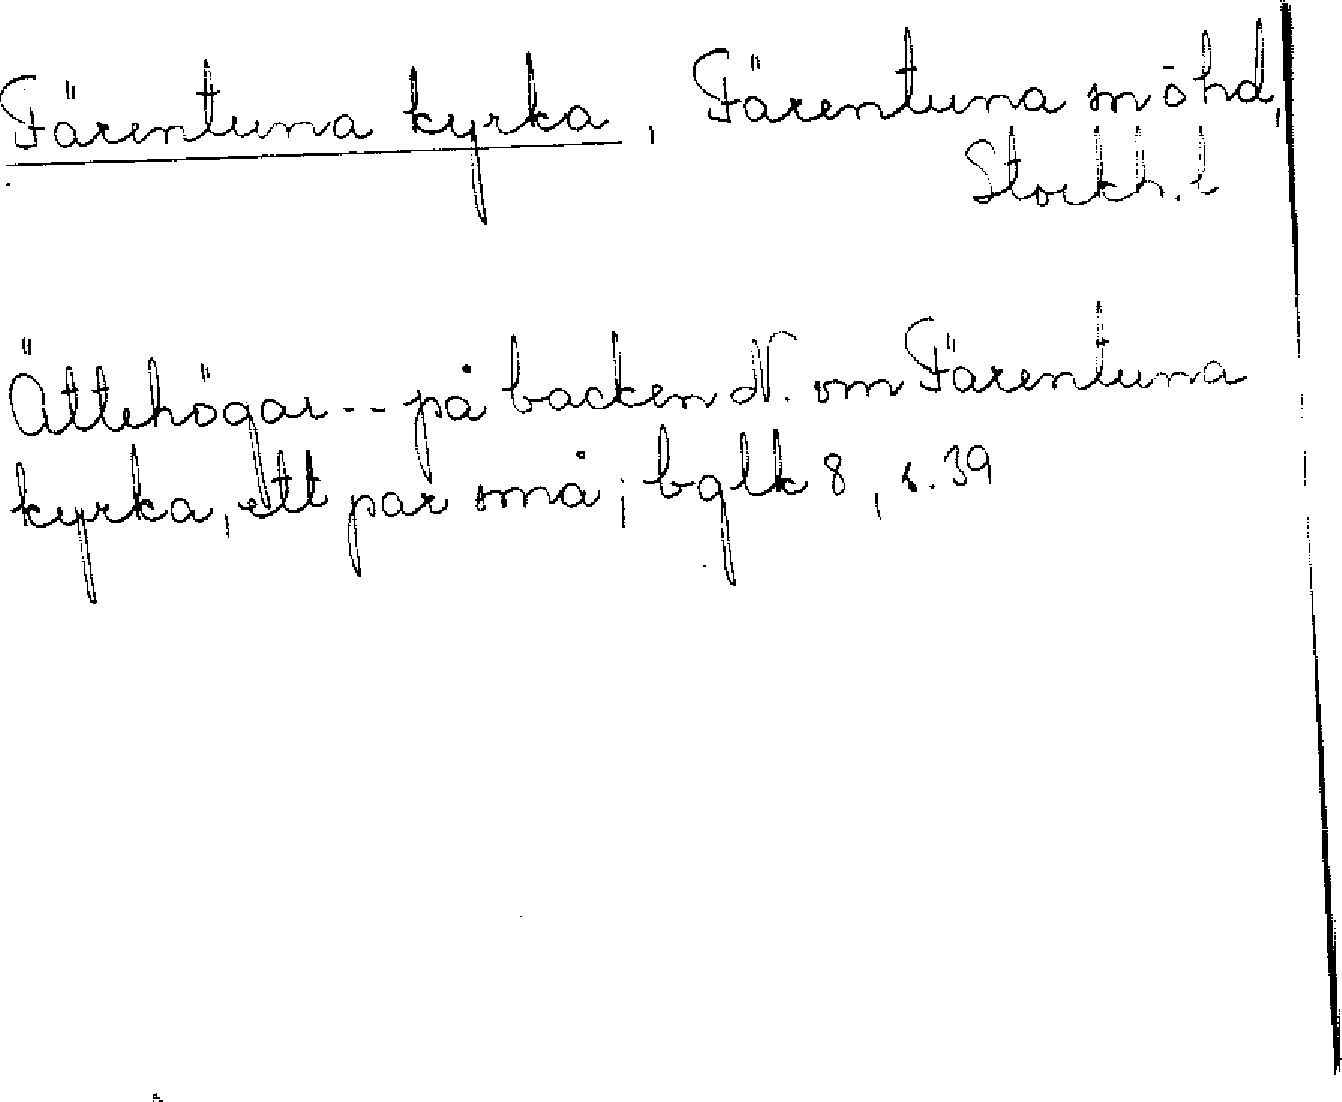 Färentuna kyrka, Färentuna sn öhd,
Stockh. l
Ättehögar -- på backen N. om Färentuna
kyrka, ett par små; bglk 8, s. 39